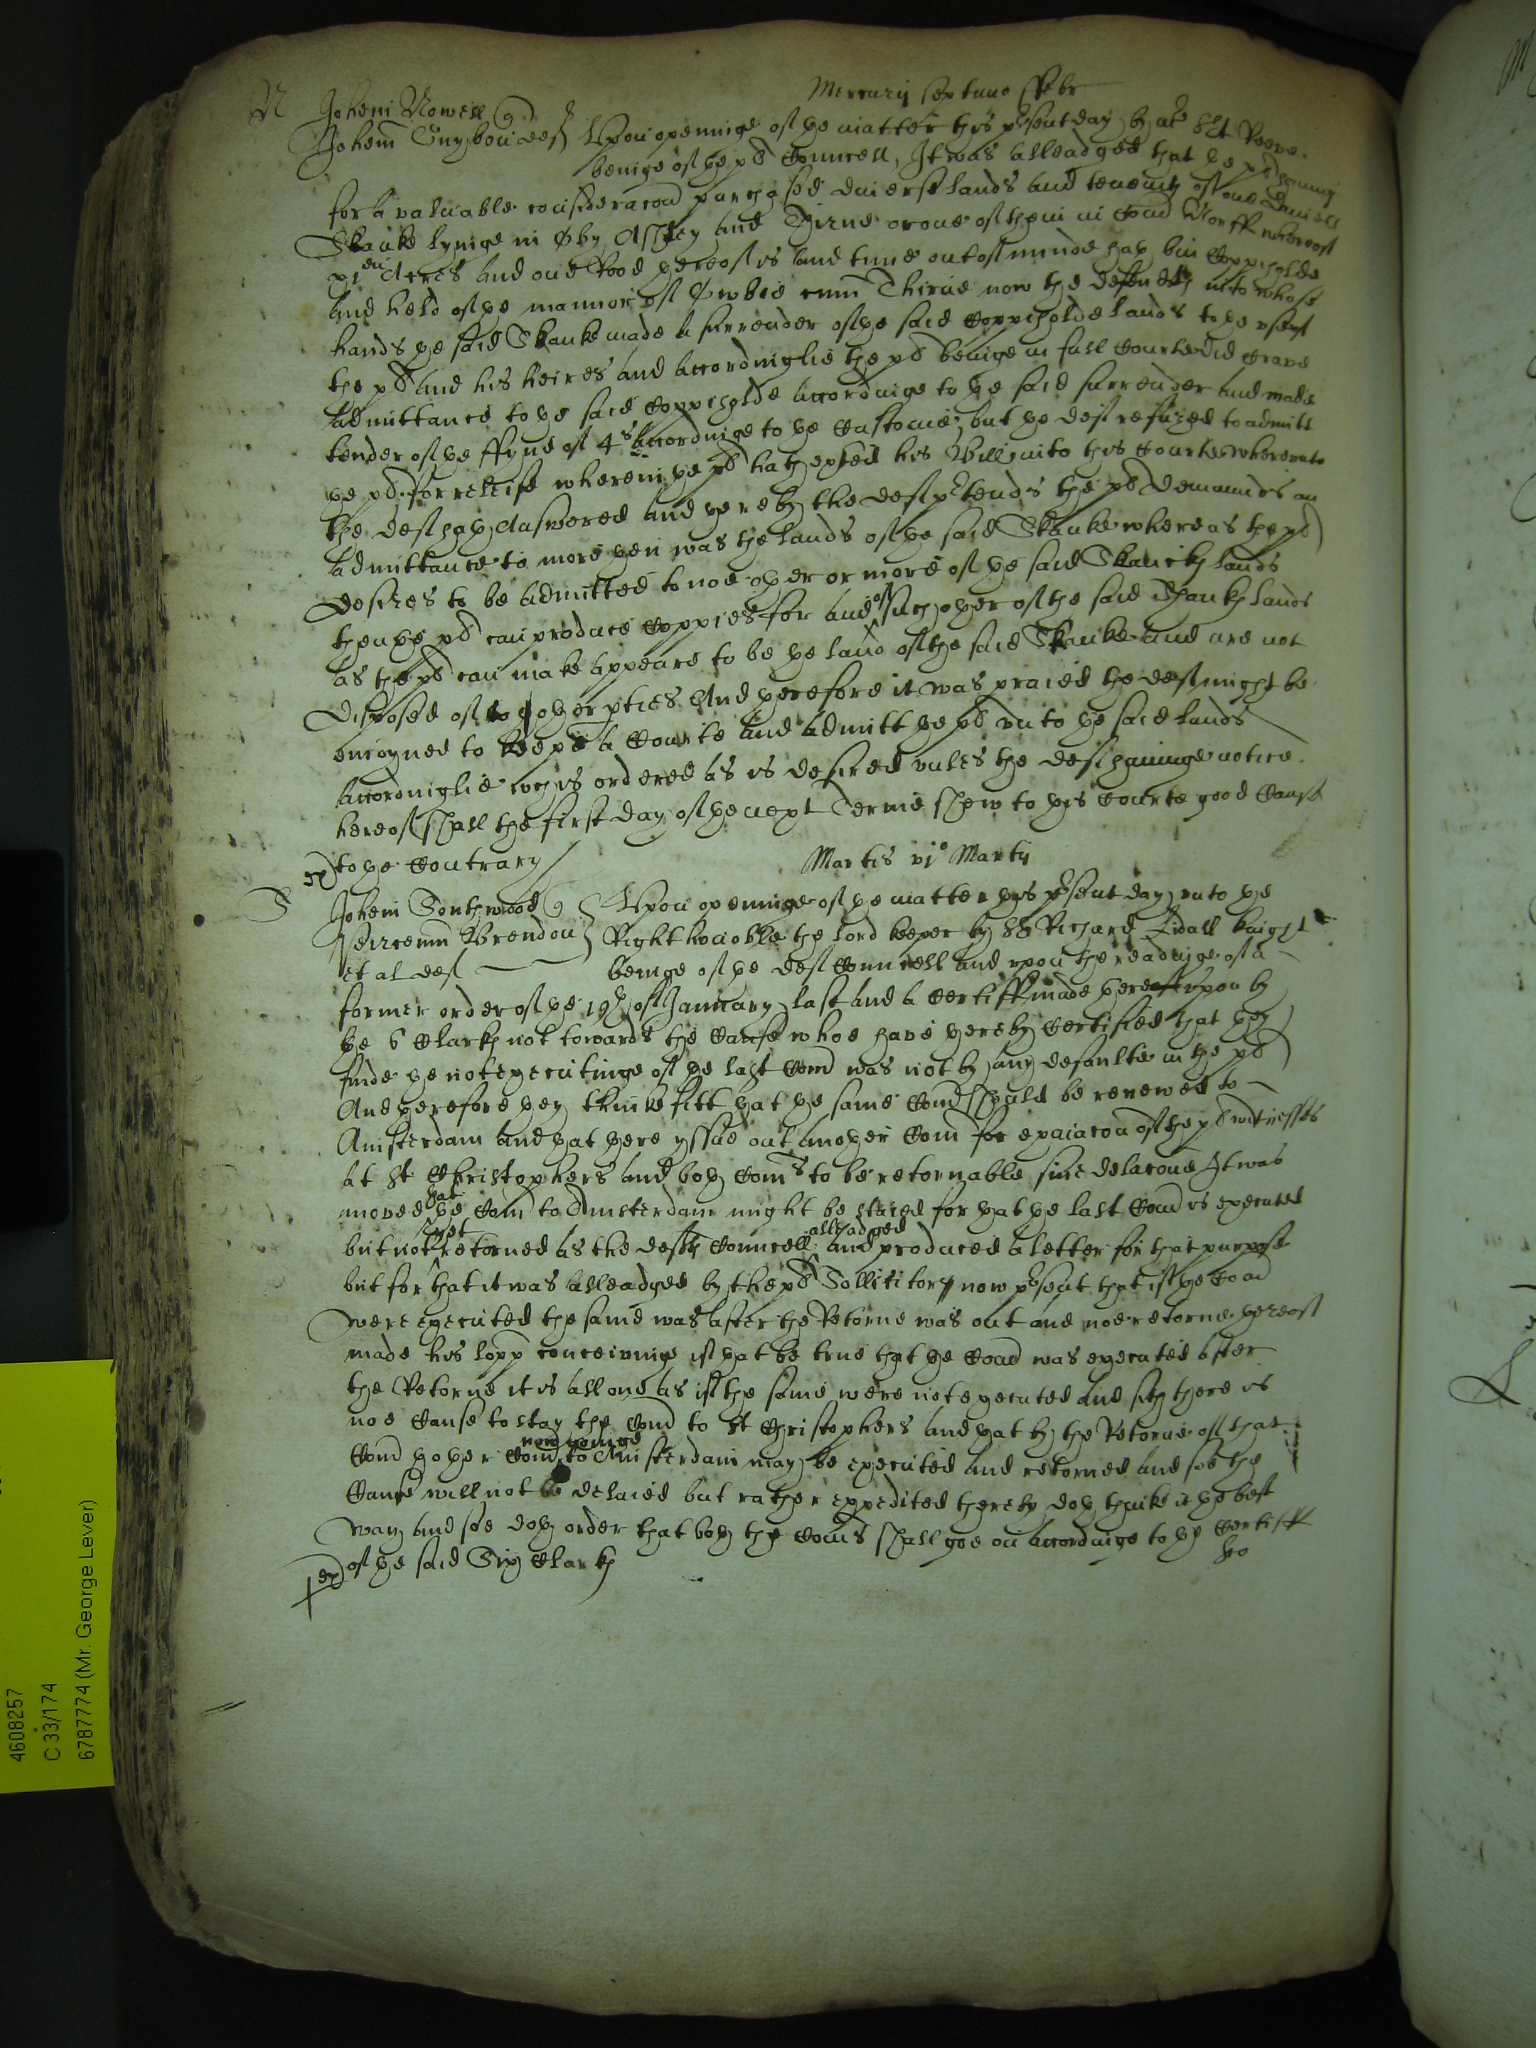 Mercurij septimo ffebr
N Johem Nowell q
Johem Tnybon deft Upon openinge of ye matter this pꝛsent day by mr Sit Reeve
beinge of ye pl Councell, It was alleadged that ye pl haveing
for a valuable consideracon purchased diverse lands and tenemts of one Daniell
Skanke lyinge in Oby Assbey and Thirne or one of them in Com Norff whereof
xien Acres and one Rood yereof is and time out of minde hath bin Coppiholde
and held of ye mannor of Owbie cum Thirne now the defendts into whose
hands ye said Skanke made a surrender of ye said Coppiholde lands to ye use of
the pl and his heires and accordinglie the pl beinge in full Courte did crave
admittance to ye said Coppiholde accordinge to ye said surrender and made
tender of ye ffyne of 4s accordinge to ye Custome, but ye deft refuzed to admitt
ye pl for releife wherein ye pl hath exhibited his Bill into this Courte whereunto
the deft hath Answered and yereby the deft pꝛtends the pl demaunds an
admittance to more yen was the lands of ye said Skanke whereas the pl
desires to be admitted to noe other or more of ye said Skancks lands
then ye pl can produce Coppies for and of such other of the said Skanks lands
as the pl can make appeare to be ye land of the said Skanke and are not
disposed of to other pties And yerefore it was praied the deft might be
enioyned to keepe a Courte and admitt ye pl unto ye said lands
accordinglie wch is ordered as is desired unles the deft haveinge notice
hereof shall the first day of ye next Terme shew to this Courte good Cause
to ye Contrary
Martis vjo Martij
S Johem Southwood q Upon openinge of ye matter this pꝛsent day unto ye
Peircenn Brendon Right honoble the lord keeper by Sr Richard Lidall knight
et al deft beinge of ye deft Councell and upon the readinge of a
former order of ye 19th of January last and a Certiff made yereupon by
ye 6 Clarks not towards the Cause whoe have yereby Certified that they
finde ye not executinge of ye last Comd was not by any defaulte in the pl
And yerefore they thinke fitt yat ye same Comd should be renewed to
Amsterdam and yat yere yssue out another Com for exaiacon of the pl witnesses
at St Christophers and both Coms to be retornable sine delacone It was
moved yat ye Com to Amsterdam might be staied for yat ye last Comd is executed
but not yet retorned as the defts Councell alleadged and produced a letter for that purpose
but for that it was alleadged by the pl Sollicitor now pꝛsent that if ye Comd
were executed the same was after the Retorne was out and noe retorne yereof
made his lopp conceivinge if yat be true that ye Comd was executed after
the Retorne it is all one as if the same were not executed and sith there is
noe Cause to stay the Comd to St Christophers and yat by the Retorne of that
Comd ye other Comd now goinge to Amsterdam may be executed and retorned and soe the
Cause will not be delaied but rather expedited thereby doth thinke it ye best
way and soe doth order that both the Coms shall goe on accordinge to ye Certiff
of ye said Six Clarks
4608257
C 33/174
6787774 (Mr. George Lever)